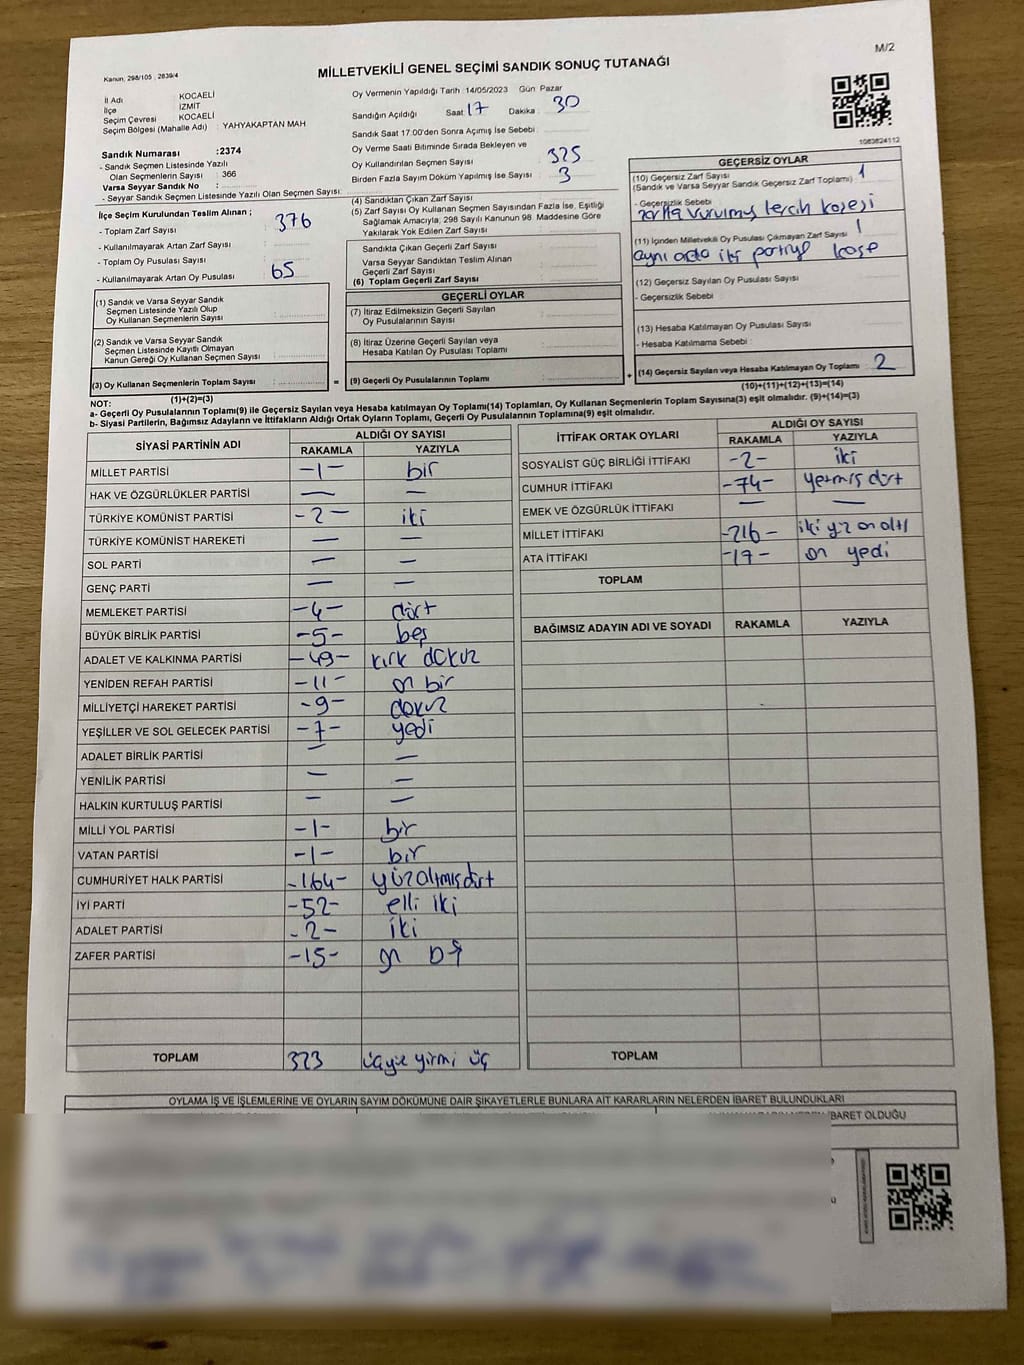 M/2
Kanun, 298/105 , 2839/4
MİLLETVEKİLİ GENEL SEÇİMİ SANDIK SONUÇ TUTANAĞI
İl Adı : KOCAELİ
İlçe : İZMİT
Seçim Çevresi : KOCAELİ
Seçim Bölgesi (Mahalle Adı) : YAHYAKAPTAN MAH
Sandık Numarası :2374
- Sandık Seçmen Listesinde Yazılı
Olan Seçmenlerin Sayısı : 366
Varsa Seyyar Sandık No :
- Seyyar Seçmen Listesinde Yazılı Olan Seçmen Sayısı:
İlçe Seçim Kurulundan Teslim Alınan ;
- Toplam Zarf Sayısı : 376
- Kullanılmayarak Artan Zarf Sayısı :
- Toplam Oy Pusulası Sayısı :
- Kullanılmayarak Artan Oy Pusulası : 65
(1) Sandık ve Varsa Seyyar Sandık
Seçmen Listesinde Yazılı Olup
Oy Kullanan Seçmenlerin Sayısı :
(2) Sandık ve Varsa Seyyar Sandık
Seçmen Listesinde Kayıtlı Olmayan
Kanun Gereği Oy Kullanan Seçmen Sayısı :
(3) Oy Kullanan Seçmenlerin Toplam Sayısı :
(1)+(2)=(3)
Oy Vermenin Yapıldığı Tarih : 14/05/2023 Gün Pazar
Sandığın Açıldığı Saat : 17 Dakika : 30
Sandık Saat 17.00'den Sonra Açımış İse Sebebi :
Oy Verme Saati Bitiminde Sırada Bekleyen ve
Oy Kullandırılan Seçmen Sayısı : 325
Birden Fazla Sayım Döküm Yapılmış İse Sayısı : 3
(4) Sandıktan Çıkan Zarf Sayısı :
(5) Zarf Sayısı Oy Kullanan Seçmen Sayısından Fazla İse, Eşitliği
Sağlamak Amacıyla, 298 Sayılı Kanunun 98. Maddesine Göre
Yakılarak Yok Edilen Zarf Sayısı :
Sandıkta Çıkan Geçerli Zarf Sayısı :
Varsa Seyyar Sandıktan Teslim Alınan
Geçerli Zarf Sayısı :
(6) Toplam Geçerli Zarf Sayısı :
GEÇERLİ OYLAR
(7) İtiraz Edilmeksizin Geçerli Sayılan
Oy Pusulalarının Sayısı :
(8) İtiraz Üzerine Geçerli Sayılan veya
Hesaba Katılan Oy Pusulası Toplamı :
= (9) Geçerli Oy Pusulalarının Toplamı : +
1083824112
GEÇERSİZ OYLAR
(10) Geçersiz Zarf Sayısı
(Sandık ve Varsa Seyyar Sandık Geçersiz Zarf Toplamı) 1
- Geçersizlik Sebebi
zarfta vurulmuş tercih kaşesi
(11) İçinden Milletvekili Oy Pusulası Çıkmayan Zarf Sayısı 1
aynı anda iki partiye kaşe
(12) Geçersiz Sayılan Oy Pusulası Sayısı :
- Geçersizlik Sebebi
(13) Hesaba Katılmayan Oy Pusulası Sayısı
- Hesaba Katılmama Sebebi :
(14) Geçersiz Sayılan veya Hesaba Katılmayan Oy Toplamı : 2
(10)+(11)+(12)+(13)=(14)
NOT:
a- Geçerli Oy Pusulalarının Toplamı(9) ile Geçersiz Sayılan veya Hesaba katılmayan Oy Toplamı(14) Toplamları, Oy Kullanan Seçmenlerin Toplam Sayısına(3) eşit olmalıdır. (9)+(14)=(3)
b- Siyasi Partilerin, Bağımsız Adayların ve İttifakların Aldığı Ortak Oyların Toplamı, Geçerli Oy Pusulalarının Toplamına(9) eşit olmalıdır.
SİYASİ PARTİNİN ADI ALDIĞI OY SAYISI
RAKAMLA YAZIYLA
MİLLET PARTİSİ -1- bir
HAK VE ÖZGÜRLÜKLER PARTİSİ — —
TÜRKİYE KOMÜNİST PARTİSİ -2- iki
TÜRKİYE KOMÜNİST HAREKETİ — —
SOL PARTİ — —
GENÇ PARTİ — —
MEMLEKET PARTİSİ -4- dört
BÜYÜK BİRLİK PARTİSİ -5- beş
ADALET VE KALKINMA PARTİSİ -49- kırk dokuz
YENİDEN REFAH PARTİSİ -11- on bir
MİLLİYETÇİ HAREKET PARTİSİ -9- dokuz
YEŞİLLER VE SOL GELECEK PARTİSİ -7- yedi
ADALET BİRLİK PARTİSİ — —
YENİLİK PARTİSİ — —
HALKIN KURTULUŞ PARTİSİ — —
MİLLİ YOL PARTİSİ -1- bir
VATAN PARTİSİ -1- bir
CUMHURİYET HALK PARTİSİ -164- yüzaltmışdört
İYİ PARTİ -52- elli iki
ADALET PARTİSİ -2- iki
ZAFER PARTİSİ -15- on beş
TOPLAM 323 üçyüz yirmi üç
İTTİFAK ORTAK OYLARI ALDIĞI OY SAYISI
RAKAMLA YAZIYLA
SOSYALİST GÜÇ BİRLİĞİ İTTİFAKI -2- iki
CUMHUR İTTİFAKI -74- yetmiş dört
EMEK VE ÖZGÜRLÜK İTTİFAKI — —
MİLLET İTTİFAKI -216- iki yüz on altı
ATA İTTİFAKI -17- on yedi
TOPLAM
BAĞIMSIZ ADAYIN ADI VE SOYADI RAKAMLA YAZIYLA
TOPLAM
OYLAMA İŞ VE İŞLEMLERİNE VE OYLARIN SAYIM DÖKÜMÜNE DAİR ŞİKAYETLERLE BUNLARA AİT KARARLARIN NELERDEN İBARET BULUNDUKLARI
İBARET OLDUĞU